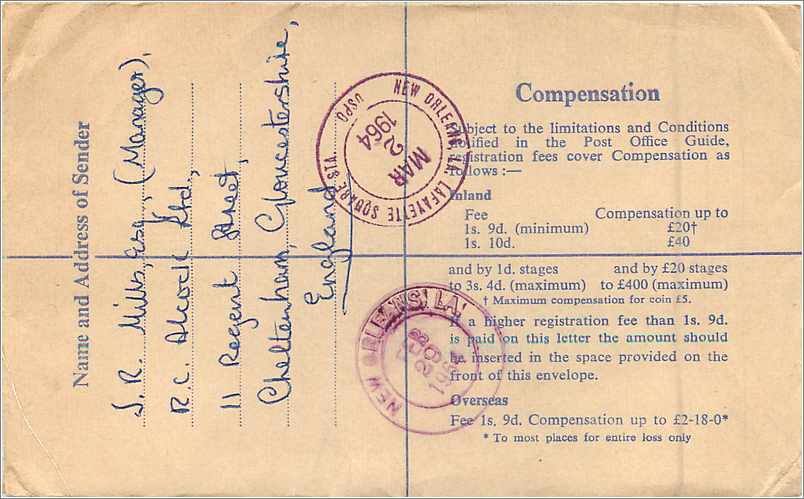 Name and Address of Sender
J. R. Mills, Esq., (Manager),
R. C. Alcock Ltd.,
11 Regent Street,
Cheltenham, Gloucestershire,
England
NEW ORLEANS, LA. LAFAYETTE SQUARE STA USPO
MAR
2
1964
NEW ORLEANS, LA.
Compensation
Subject to the limitations and Conditions
specified in the Post Office Guide,
registration fees cover Compensation as
follows :—
Inland
Fee Compensation up to
1s. 9d. (minimum) £20†
1s. 10d. £40
and by 1d. stages and by £20 stages
to 3s. 4d. (maximum) to £400 (maximum)
† Maximum compensation for coin £5.
If a higher registration fee than 1s. 9d.
is paid on this letter the amount should
be inserted in the space provided on the
front of this envelope.
Overseas
Fee 1s. 9d. Compensation up to £2-18-0*
* To most places for entire loss only